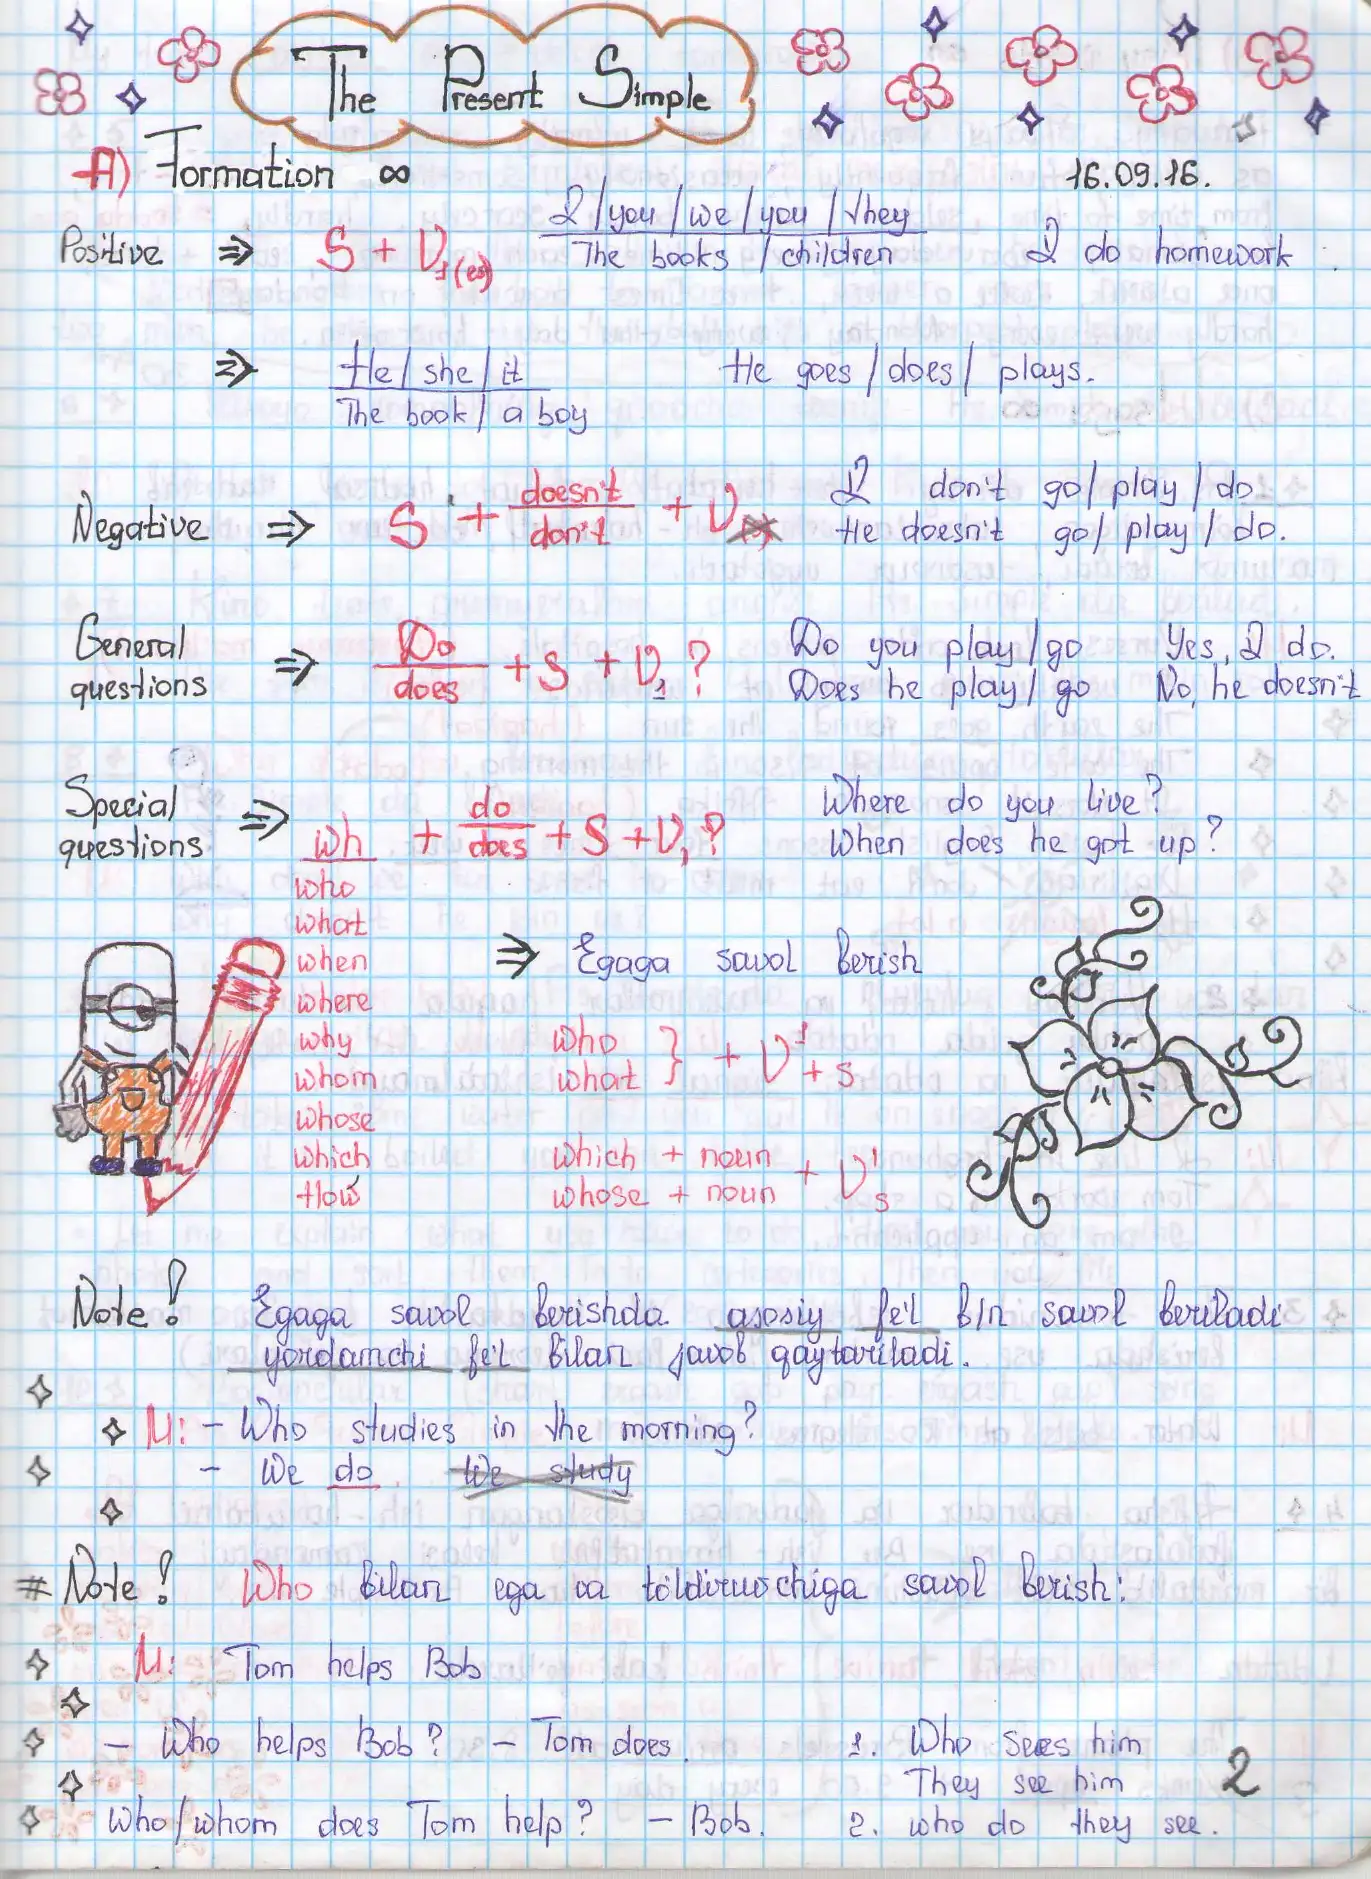 The Present Simple
A) Formation ∞ 16.09.16.
I / you / we / you / they
Positive ⇒ S + V1(es) The books / children I do homework
⇒ He / she / it He goes / does / plays.
The book / a boy
doesn't I don't go / play / do.
Negative ⇒ S + don't + V(s) He doesn't go / play / do.
General Do Do you play / go Yes, I do.
questions ⇒ does + S + V1? Does he play / go No, he doesn't
Special do Where do you live?
questions ⇒ wh + does + S + V1? When does he got up?
who
what
when ⇒ Egaga savol berish
where
why who
whom what } + V1+s
whose
which which + noun
How whose + noun + V1s
Note! Egaga savol berishda asosiy fe'l b/n savol beriladi
yordamchi fe'l bilan javob qaytariladi.
M: – Who studies in the morning?
– We do. We study
# Note! Who bilan ega va to'ldiruvchiga savol berish:
M: Tom helps Bob
– Who helps Bob? – Tom does. 1. Who sees him
They see him 2
Who/whom does Tom help? – Bob. 2. who do they see.